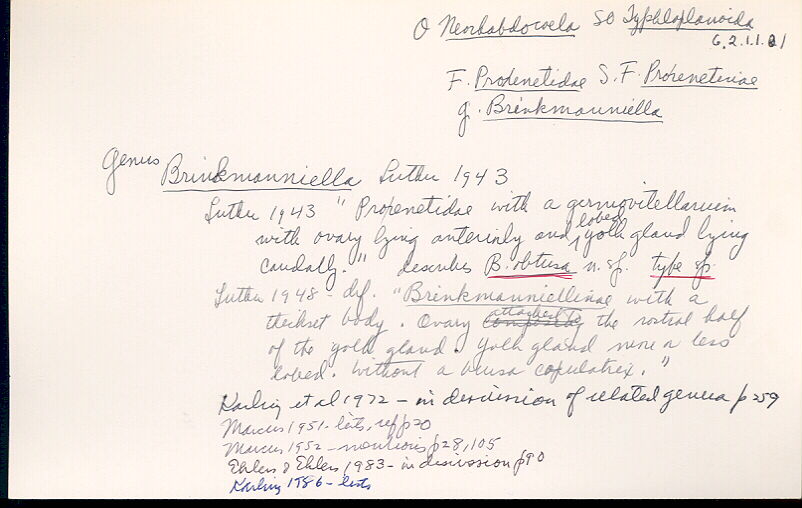 O Neorhabdocoela SO Typhloplanoida
6.2.1.1.21
F. Proxenetidae S.F. Proxenetinae
g. Brinkmanniella
Genus Brinkmanniella Luther 1943
Luther 1943 "Proxenetidae with a germovitellarium
with ovary lying anteriorly and lobed yolk gland lying
caudally." describes B. obtusa n. sp. type sp.
Luther 1948 - def. "Brinkmanniellinae with a
thickset body. Ovary attached to the rostral half
of the yolk gland. Yolk gland more or less
lobed. Without a bursa copulatrix."
Karling et al 1972 - in discussion of related genera p 259
Marcus 1951 - lists, ref p 20
Marcus 1952 - mentions p 28, 105
Ehlers & Ehlers 1983 - in discussion p 90
Karling 1986 - lists